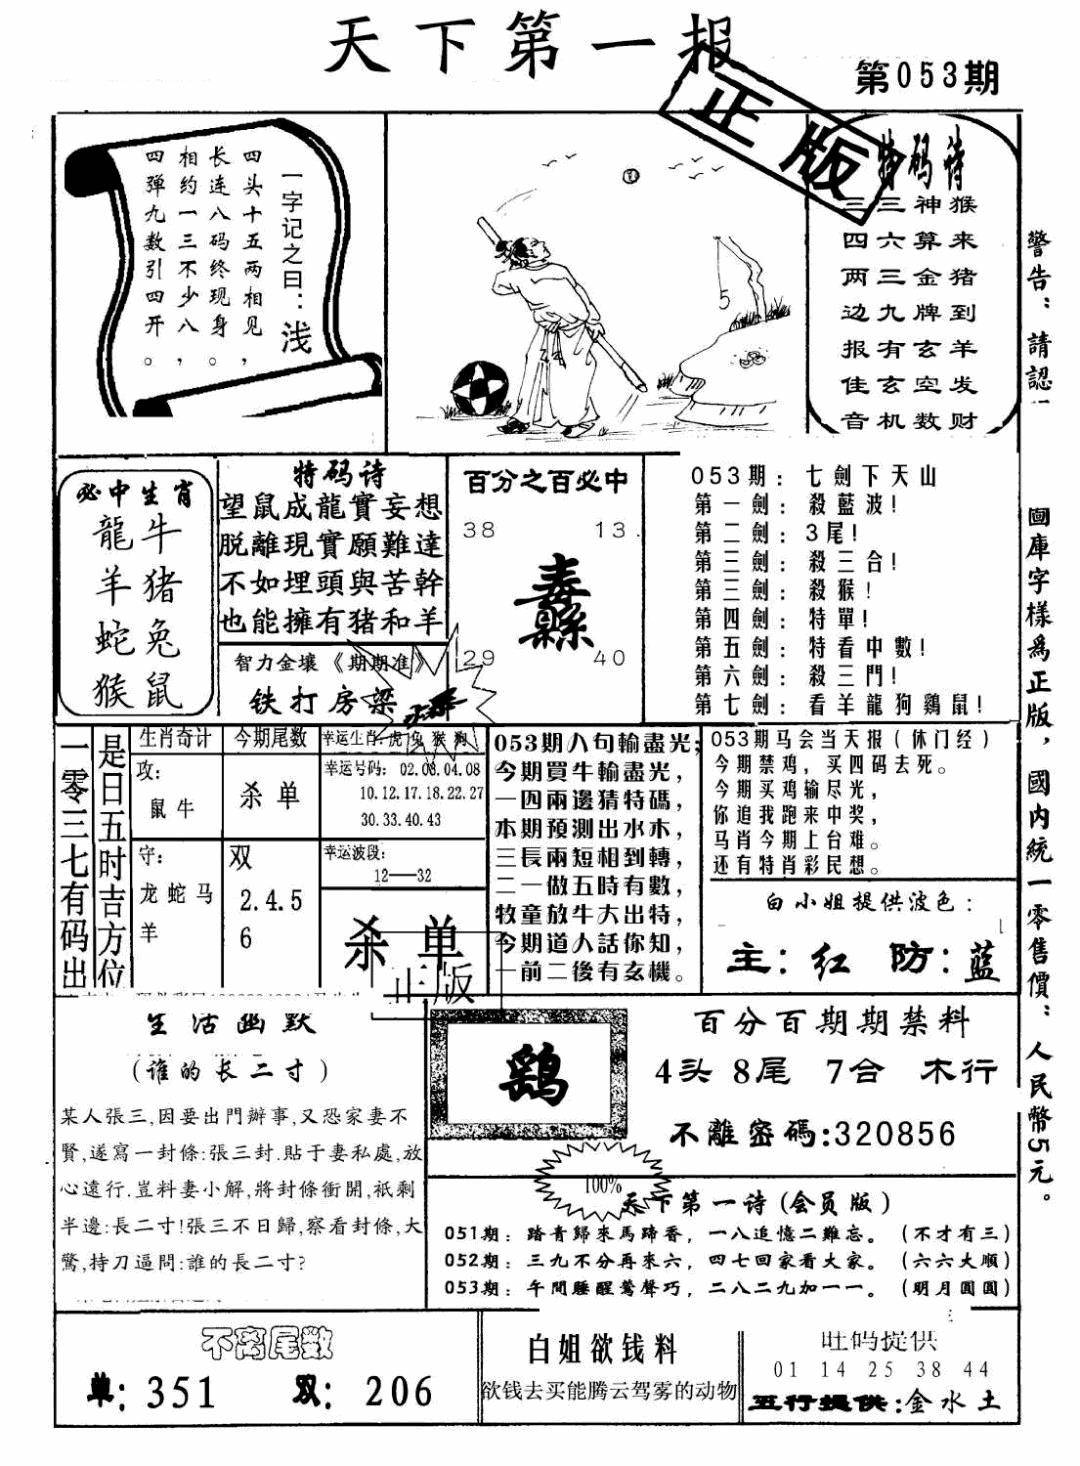 天下第一报
第053期
正版
一字记之曰：浅
四头十五两相见，
长连八码终现身。
相约一三不少八，
四弹九数引四开。
特码诗
三三神猴
四六算来
两三金猪
边九牌到
报有玄羊
佳玄空发
音机数财
警告：請認
圖庫字樣爲正版，國内統一零售價：人民幣5元。
必中生肖
龍牛
羊猪
蛇兔
猴鼠
特码诗
望鼠成龍實妄想
脱離現實願難達
不如埋頭與苦幹
也能擁有猪和羊
智力金壤《期期准》
铁打房梁
百分之百必中
38 13.
29 40
053期：七劍下天山
第一劍：殺藍波!
第二劍：3尾!
第三劍：殺三合!
第三劍：殺猴!
第四劍：特單!
第五劍：特看中數!
第六劍：殺三門!
第七劍：看羊龍狗鷄鼠!
一零三七有码出
是日五时吉方位
生肖奇计
攻：
鼠牛
守：
龙蛇马
羊
今期尾数
杀单
双
2.4.5
6
幸运生肖：虎兔猴狗
幸运号码：02.03.04.08
10.12.17.18.22.27
30.33.40.43
幸运波段：
12——32
杀单
正版
053期八句輸盡光；
今期買牛輸盡光，
一四兩邊猜特碼，
本期預測出水木，
三長兩短相到轉，
二一做五時有數，
牧童放牛大出特，
今期道人話你知，
一前二後有玄機。
053期马会当天报(休门经)
今期禁鸡，买四码去死。
今期买鸡输尽光，
你追我跑来中奖，
马肖今期上台难。
还有特肖彩民想。
白小姐提供波色：
主：红 防：蓝
生活幽默
(谁的长二寸)
某人張三,因要出門辦事,又恐家妻不
賢,遂寫一封條:張三封.貼于妻私處,放
心遠行.豈料妻小解,將封條衝開,衹剩
半邊:長二寸!張三不日歸,察看封條,大
驚,持刀逼問:誰的長二寸?
鷄
百分百期期禁料
4头 8尾 7合 木行
不離密碼:320856
100%
天下第一诗(会员版)
051期：踏青歸來馬蹄香，一八追憶二難忘。(不才有三)
052期：三九不分再來六，四七回家看大家。(六六大順)
053期：午間睡醒鶯聲巧，二八二九加一一。(明月圓圓)
不离尾数
单：351 双：206
白姐欲钱料
欲钱去买能腾云驾雾的动物
旺码提供
01 14 25 38 44
五行提供:金水土